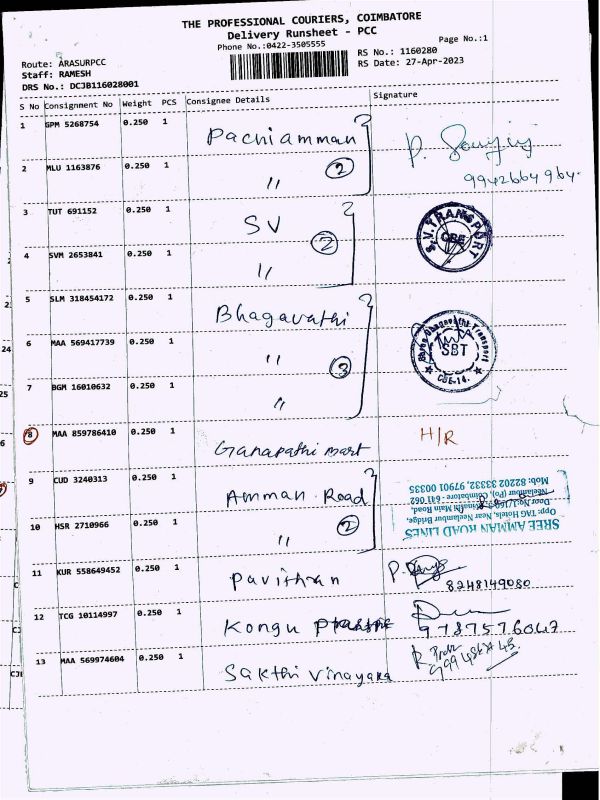 THE PROFESSIONAL COURIERS, COIMBATORE
Delivery Runsheet - PCC
Phone No.:0422-3505555
Page No.:1
Route: ARASURPCC
RS No.: 1160280
Staff: RAMESH
RS Date: 27-Apr-2023
DRS No.: DCJB116028001
S No Consignment No Weight PCS Consignee Details Signature
1 GPM 5268754 0.250 1 Pachiamman
9942664964.
2 MLU 1163876 0.250 1 〃 2
3 TUT 691152 0.250 1 SV
S.V.TRANSPORT
CBE
4 SVM 2653841 0.250 1 〃 2
5 SLM 318454172 0.250 1 Bhagavathi
6 MAA 569417739 0.250 1 〃 3
Bhagavathi Transport
SBT
CBE-14.
7 BGM 16010632 0.250 1 〃
8 MAA 859786410 0.250 1 Ganapathi mart H/R
9 CUD 3240313 0.250 1 Amman Road
SREE AMMAN ROAD LINES
Opp: TAG Hotels, Near Neelambur Bridge,
Main Road,
Neelambur (Po), Coimbatore - 641 062
Mob: 82202 33332, 97901 00335
10 HSR 2710966 0.250 1 〃 2
11 KUR 558649452 0.250 1 Pavithran
8248149080
12 TCG 10114997 0.250 1 Kongu
9787576047
13 MAA 569974604 0.250 1 Sakthi Vinayaka